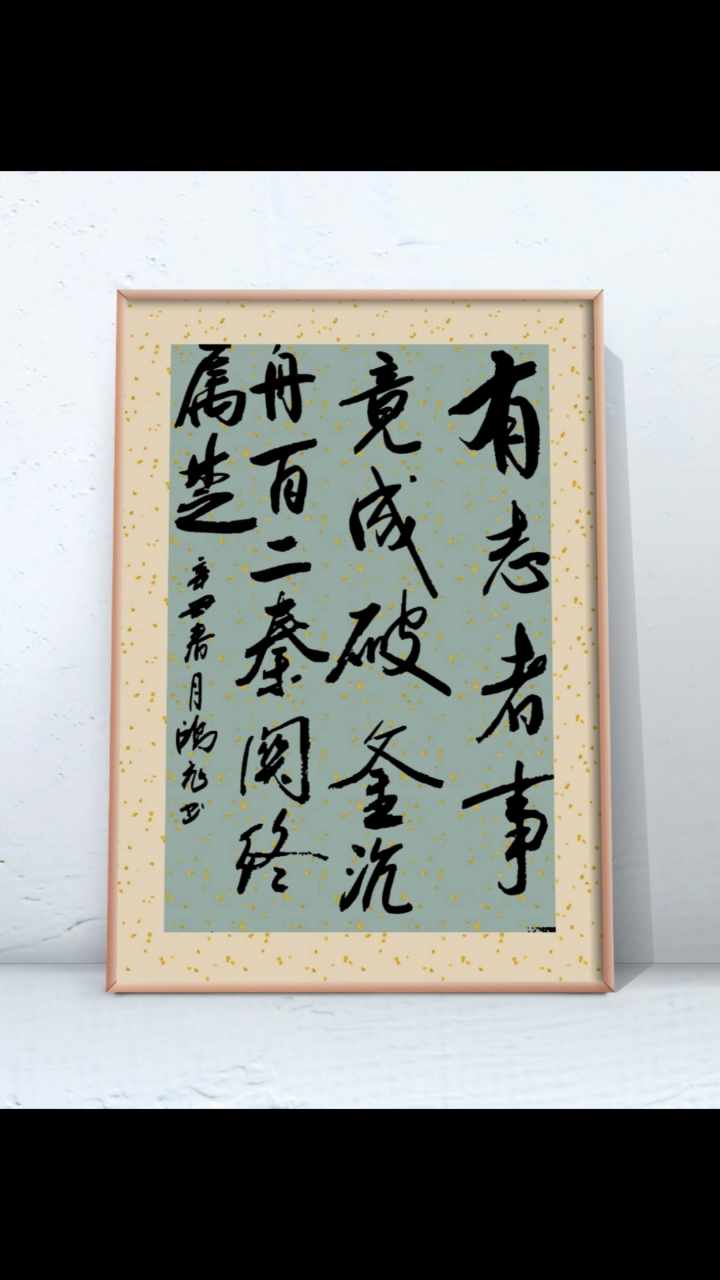 有志者事
竟成破釜沉
舟百二秦関终
属楚
辛丑春月鴻龙书